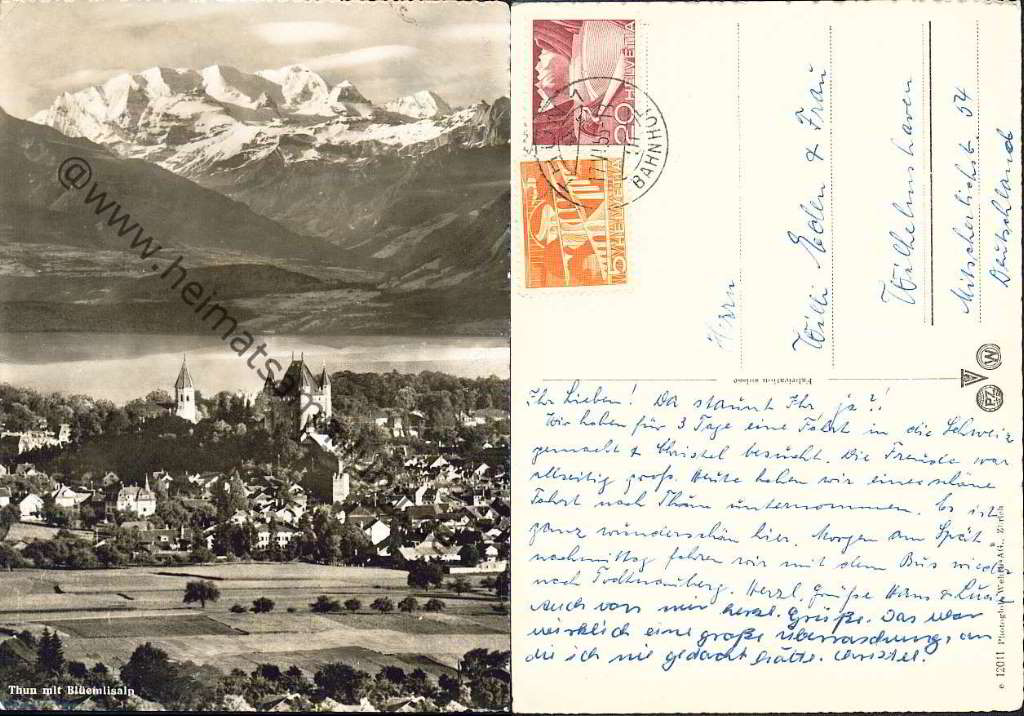 Thun mit Blüemlisalp
@www.heimatsa
20 HELVETIA
HELVETIA
BAHNHOF
Herrn
Willi Eden & Frau
Wilhelmshaven
Mitscherlichstr 54
Deutschland
Fabrication suisse
Ihr Lieben! Da staunt Ihr ja?!
Wir haben für 3 Tage eine Fahrt in die Schweiz
gemacht & Christel besucht. Die Freude war
allseitig groß. Heute haben wir eine schöne
Fahrt nach Thun unternommen. Es ist
ganz wunderschön hier. Morgen am Spät
nachmittag fahren wir mit dem Bus wieder
nach Todtnauberg. Herzl. Grüße Hans &
Auch von mir herzl. Grüße. Das war
wirklich eine große Überraschung, an
die ich nie gedacht hätte. Christel.
W
PZ
12011 Photoglob-Wehrli A.G., Zürich